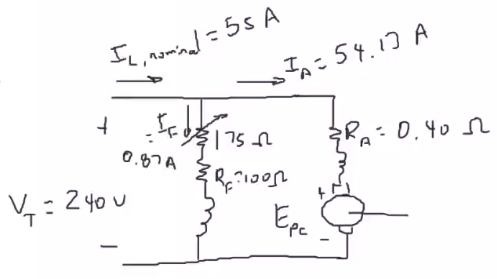 I_L, nominal = 55 A
I_A = 54.13 A
+
I_F = 0.87 A
175 Ω
R_F = 100 Ω
R_A = 0.40 Ω
V_T = 240 V
E_PC
+
-
-